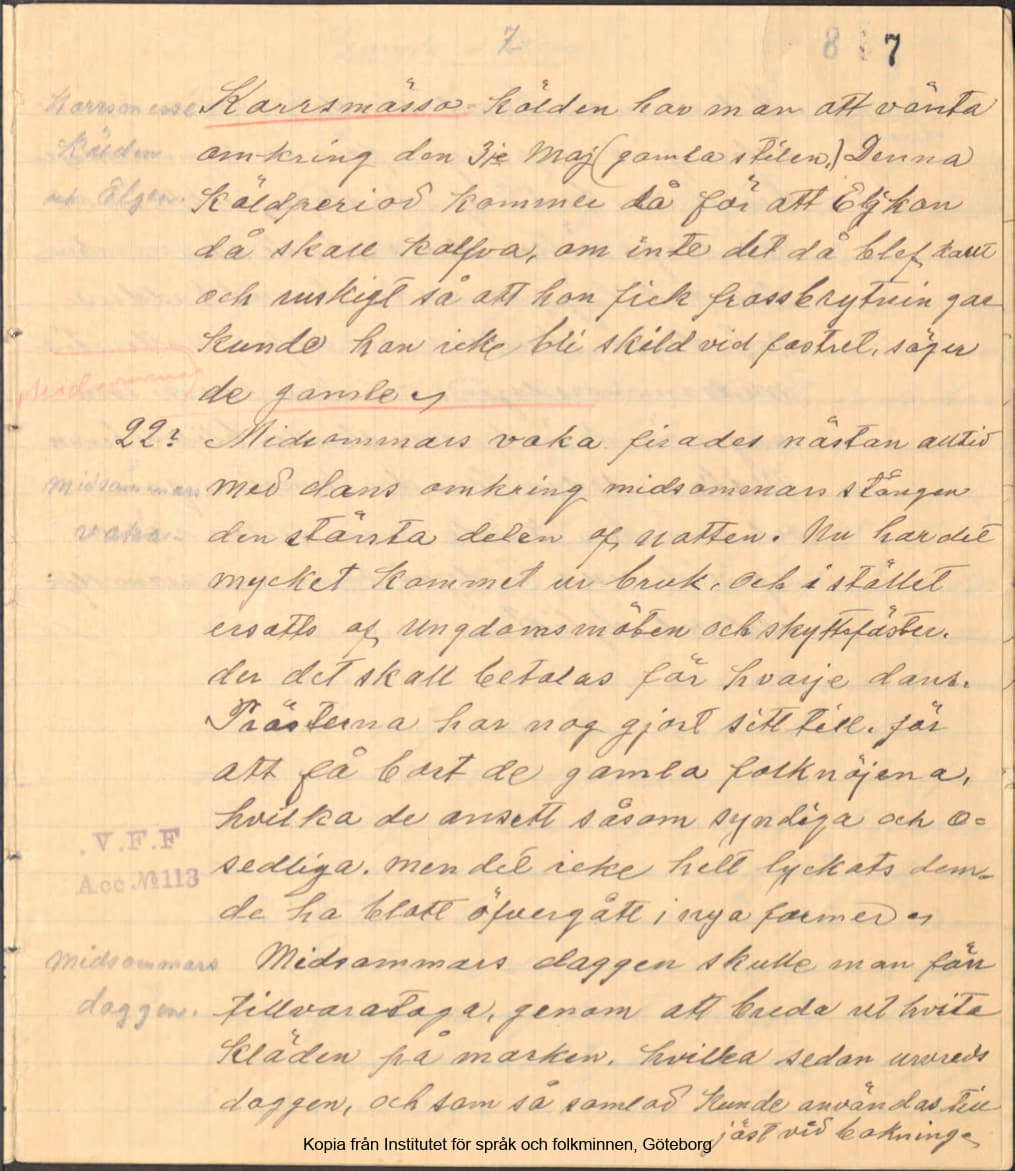 7
8 7
Korrsmesse Korrsmässo-Kölden har man att vänta
Kölden omkring den 3je Maj (gamla stilen.) Denna
och Elgen. Köldperiod kommer då för att Eljkon
då skall kalfva, om inte det då blef kallt
och ruskigt så att hon fick frossbrytningar
kunde hon icke bli skild vid fostret, säger
de gamle
22: Midsommars vaka firades nästan alltid
Midsommars med dans omkring midsommars stången
vaka. den största delen af natten. Nu har det
mycket kommet ur bruk, och i stället
ersatts af Ungdomsmöten och skyttefäster.
der det skall betalas för hvarje dans.
Prästerna har nog gjort sitt till. för
att få bort de gamla folknöjena,
hvilka de ansett såsom syndiga och o=
.V.F.F sedliga. men det icke helt lyckats dem-
Acc.№113 de ha blott öfvergått i nya former
Midsommars Midsommars daggen skulle man förr
daggen. tillvarataga, genom att breda ut hvita
Kläden på marken, hvilka sedan urvreds
daggen, och som så samlad kunde användas till
jäst vid bakning
Kopia från Institutet för språk och folkminnen, Göteborg